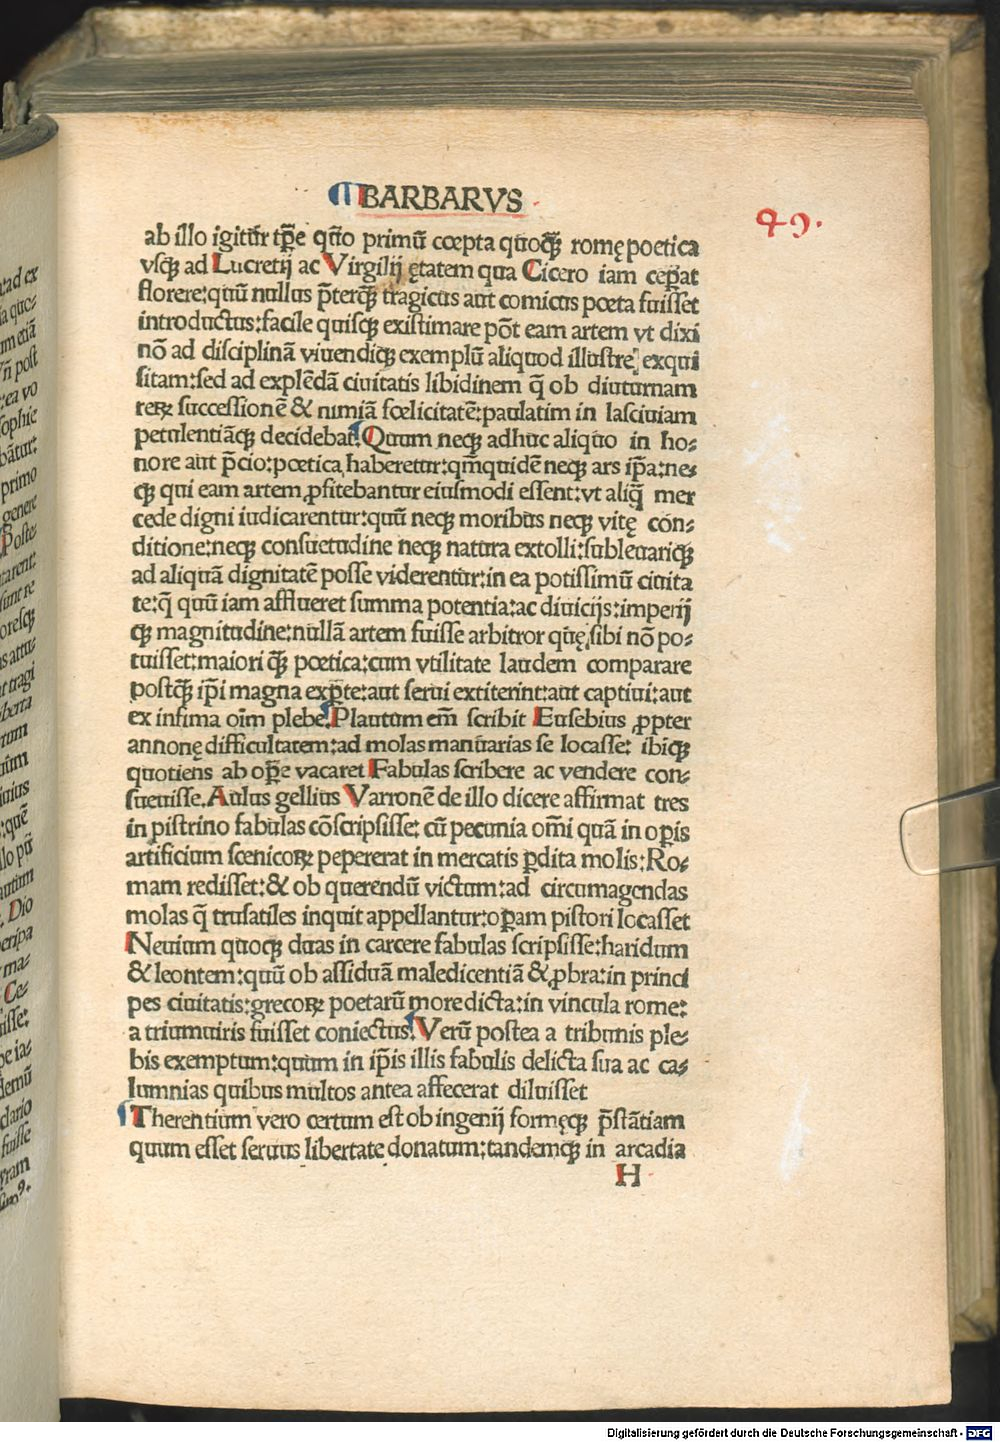 BARBARVS
49.
ab illo igitur tp̄e quo primū cœpta quoqꝫ romę poetica
vsqꝫ ad Lucretij ac Virgilij ętatem qua Cicero iam cep̄at
florere:quū nullus p̄terqꝫ tragicus aut comicus poeta fuisset
introductus:facile quisqꝫ existimare pōt eam artem vt dixi
nō ad disciplinā viuendiqꝫ exemplū aliquod illustre exqui
sitam:sed ad explēdā ciuitatis libidinem q̄ ob diuturnam
rerꝝ successionē & nimiā fœlicitatē:paulatim in lasciuiam
petulentiāqꝫ decidebat. Quum neqꝫ adhuc aliquo in ho-
nore aut p̄cio:poetica haberetur:qm̄quidē neqꝫ ars ip̄a:ne-
qꝫ qui eam artem ꝓfitebantur eiusmodi essent:vt aliq̄ mer
cede digni iudicarentur:quū neqꝫ moribus neqꝫ vitę con-
ditione:neqꝫ consuetudine neqꝫ natura extolli:subleuariqꝫ
ad aliquā dignitatē posse viderentur:in ea potissimū ciuita
te:q̄ quū iam afflueret summa potentia:ac diuicijs:imperij
qꝫ magnitudine:nullā artem fuisse arbitror quę sibi nō po-
tuisset:maiori qꝫ̄ poetica:cum vtilitate laudem comparare
postqꝫ̄ ip̄i magna ex ꝑte:aut serui extiterint:aut captiui:aut
ex infima oīm plebe. Plautum em̄ scribit Eusebius ꝓpter
annonę difficultatem:ad molas manuarias se locasse: ibiqꝫ
quotiens ab op̄e vacaret Fabulas scribere ac vendere con-
sueuisse. Aulus gellius Varronē de illo dicere affirmat tres
in pistrino fabulas cōscripsisse: cū pecunia om̄i quā in oꝑis
artificium scenicorꝝ pepererat in mercatis ꝑdita molis:Ro-
mam redisset:& ob querendū victum:ad circumagendas
molas q̄ trusatiles inquit appellantur:oꝑam pistori locasset
Neuium quoqꝫ duas in carcere fabulas scripsisse:haridum
& leontem:quū ob assiduā maledicentiā & ꝓbra:in princi
pes ciuitatis:grecorꝝ poetarū more dicta:in vincula rome:
a triumuiris fuisset coniectus. Verū postea a tribunis ple-
bis exemptum:quum in ip̄is illis fabulis delicta sua ac ca-
lumnias quibus multos antea affecerat diluisset
Therentium vero certum est ob ingenij formęqꝫ p̄stātiam
quum esset seruus libertate donatum:tandemqꝫ in arcadia
H
Digitalisierung gefördert durch die Deutsche Forschungsgemeinschaft - DFG